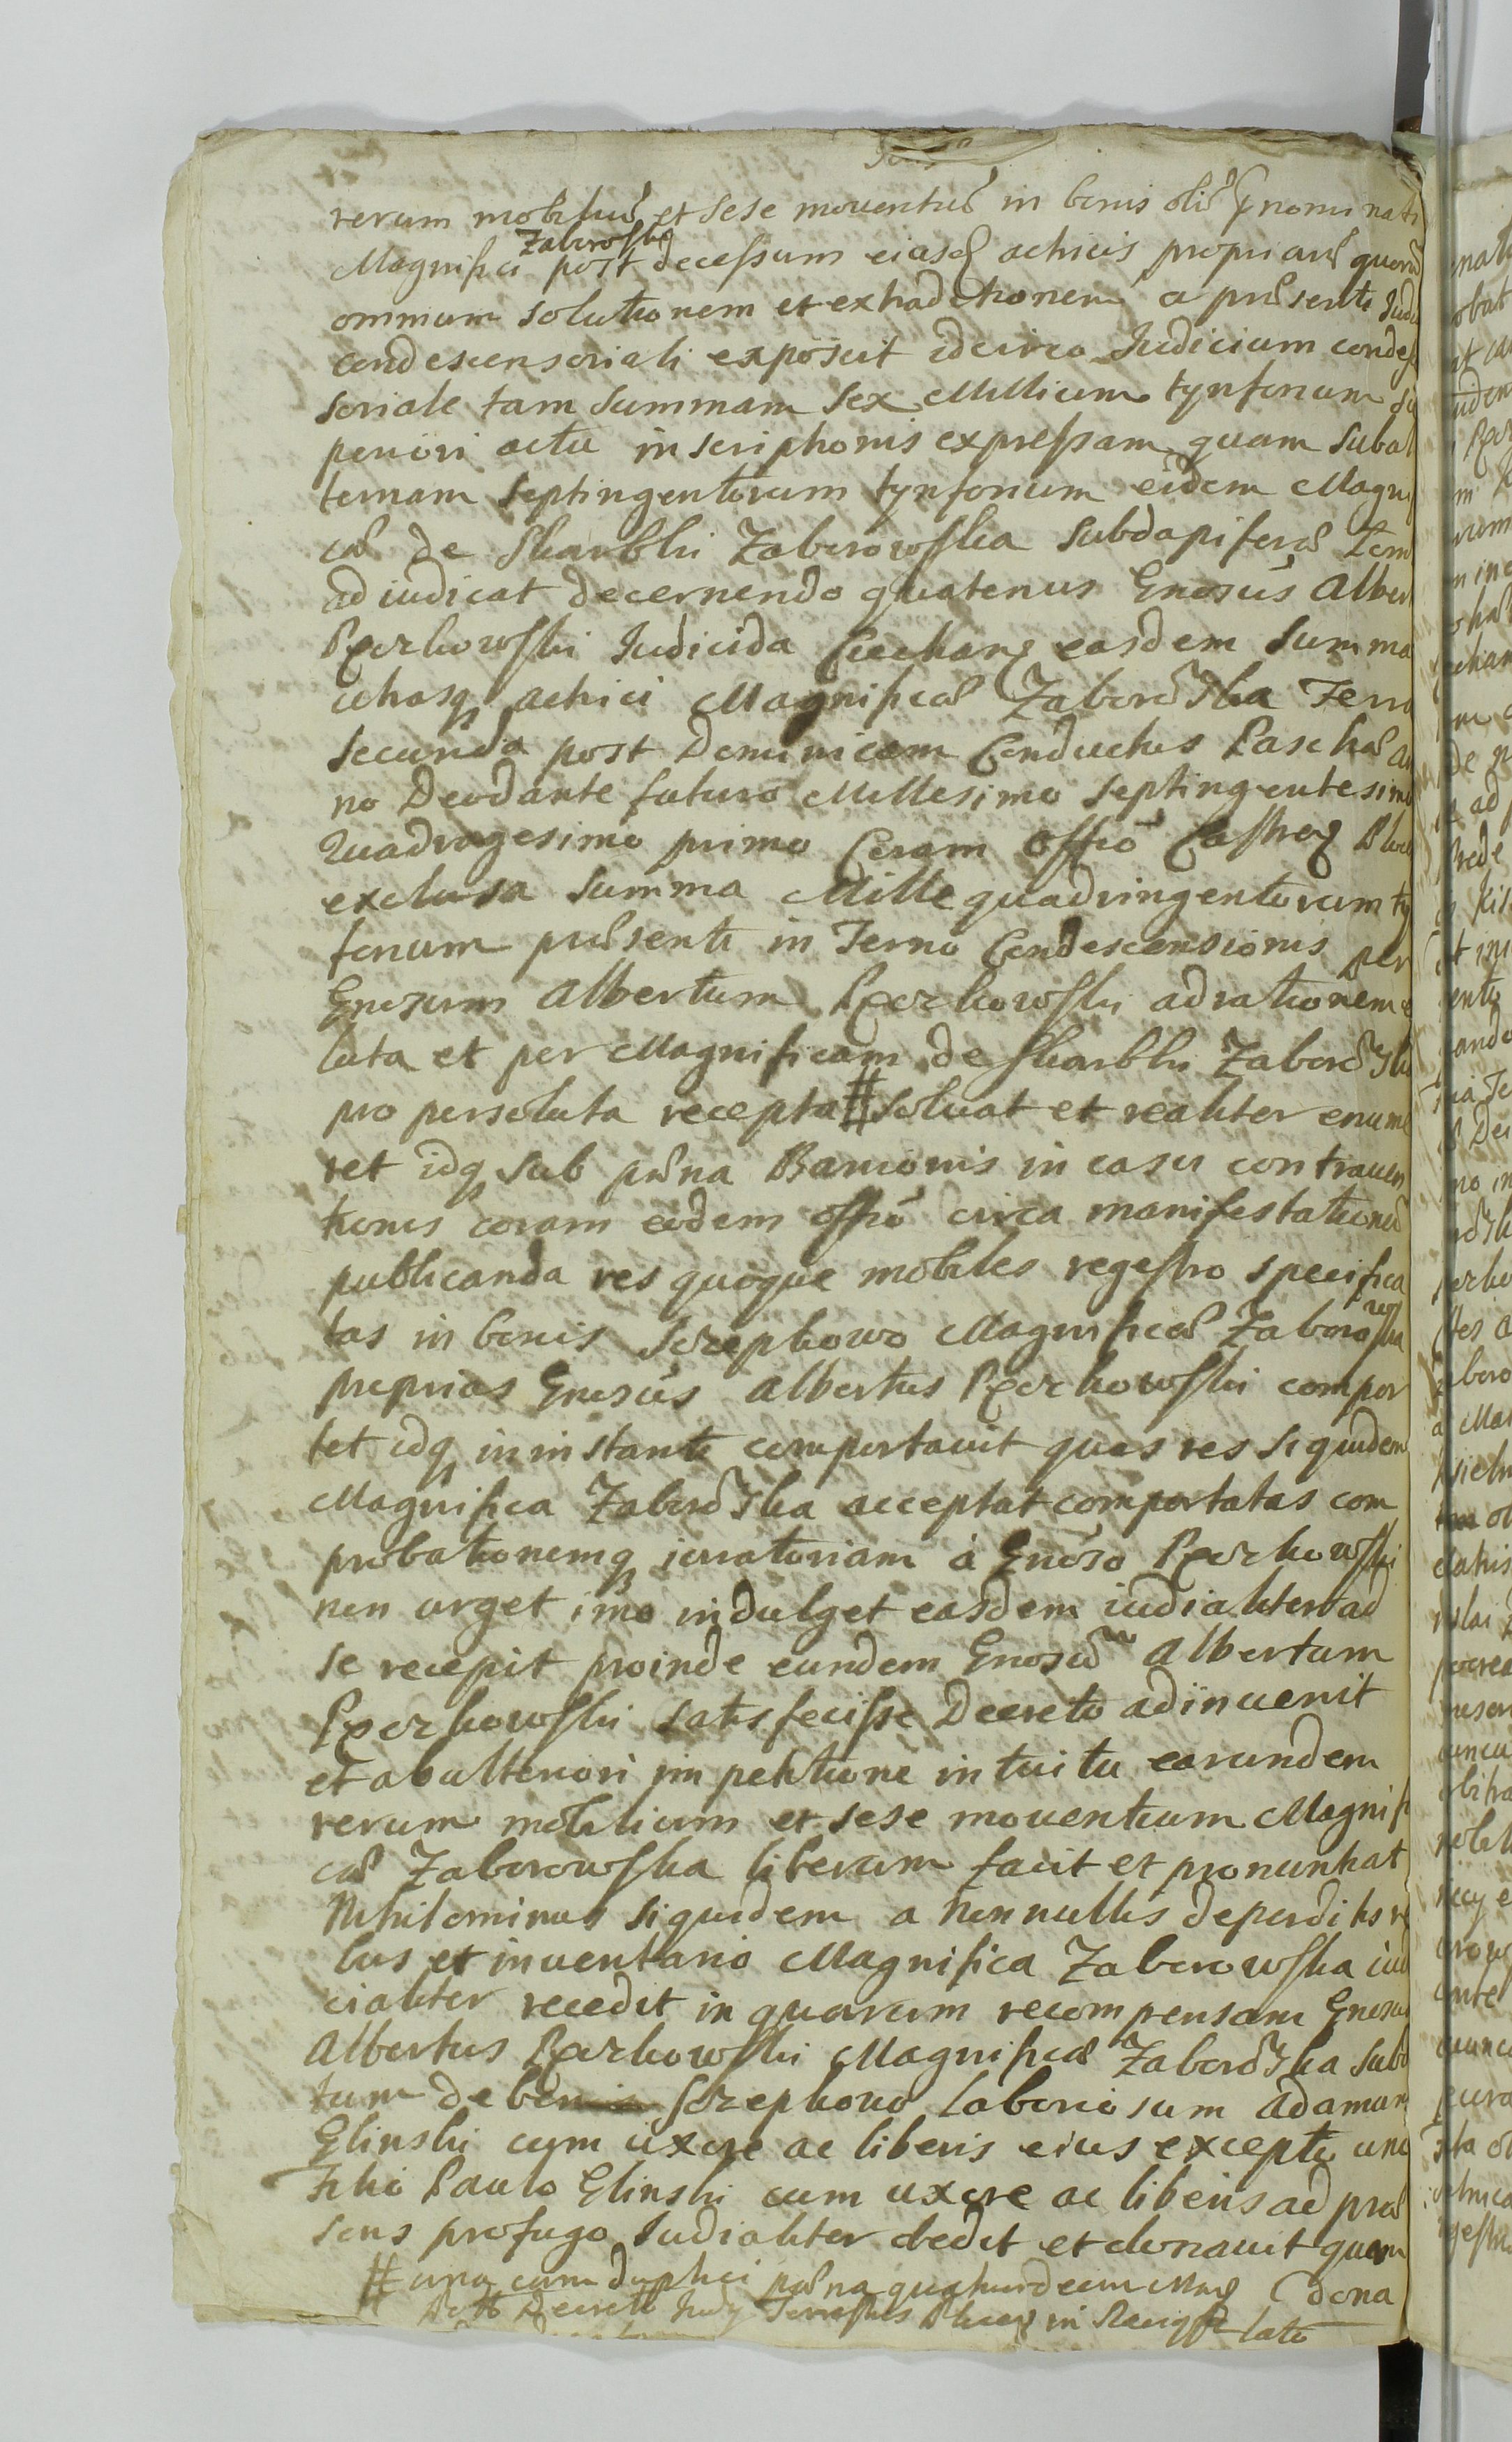 rerum mobiliũ et sese mouentiũ in bonis
Zaborowski
Magnifici post decessum eiasq actricis propriarũ quorũ
omnium solutionem et extraditionem a præsenti Judi
condescensoriali exposcit idcirco Judicium condes
soriale tam summam sex Millium tynfonum su
periori actu inscriptionis expressam quam subal
ternam septingentorum tynfonum eidem Magni
cæ de Skarbki Zaborowska Subdapiferæ
adiudicat decernendo quatenus Gnosus Alber
Pxerkowski Judicida easdem summa
citrasq actrici Magnificæ Zaborõska Feria
secunda post Dominicam Conductus Paschæ an
no Deodante futuro Millesimo septingentesimo
Quadragesimo primo Coram Offõ Castreq Ploc
exclusa summa Mille quadringentorum ty
fonum præsenti in Termo Condescensionis per
Gnosum Albertum Pxerkowski ad rationem
luta et per Magnificam de Skarbki Zaborõsk
pro persoluta recepta # soluat et realiter enume
ret idq sub pœna Banionis in casu contrauen
tionis coram eodem offiõ circa manifestationẽ
publicanda res quoque mobiles regestro specifica
tas in bonis Szczepkowo Magnificæ Zaborowska
proprias Gnosus Albertus Pxerkowski compor
tet idq in instanti comportauit quas res siquidem
Magnifica Zaborõska acceptat comportatas com
probationemq iuratoriam á Gnoso Pxerkowski
non urget imo indulget easdem iudicialiter ad
se recepit proinde eundem Gnosũm Albertum
Pxerkowski satisfecisse Decreto adinuenit
et ab ulteriori impetitione intuitu earundem
rerum mobilium et sese mouentium Magnifi
cæ Zaborowska liberum facit et pronuntiat
Nihilominus siquidem a nonnullis deperditis re
bus et inuentario Magnifica Zaborowska iudi
cialiter recedit in quarum recompensam Gnosus
Albertus Pxerkowski Magnificæ Zaborõska subdi
tum de bonis Szczepkowo Laboriosum Adamum
Glinski cum uxore ac liberis eius excepto uno
Filio Paulo Glinski cum uxore ac liberis ad præ
sens profugo Judicialiter dedit et donauit quem
# una cum duplici pœna quatuordecim Març dona
Decreti Judy Terrestris Plocen in lato